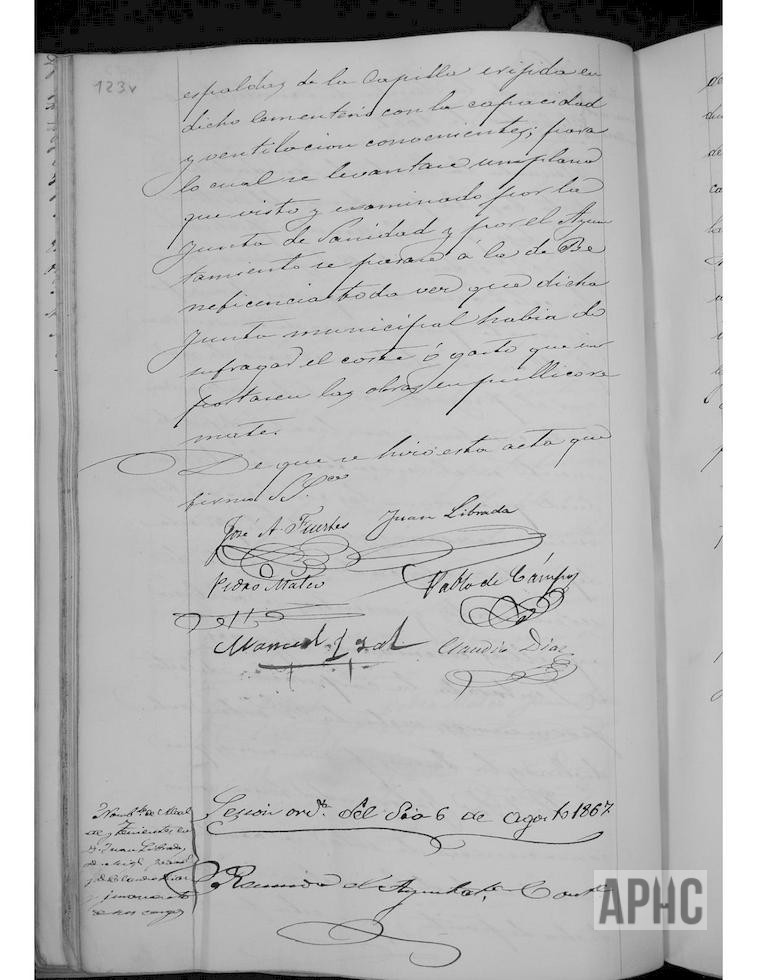 123v
espaldas de la Capilla erigida en
dicho Cementerio con la capacidad
y ventilacion convenientes; para
lo cual se levantare un plano
que visto y examinado por la
Junta de Sanidad y por el Ayun
tamiento se pasara á la de Be
neficencia toda vez que dicha
Junta municipal habia de
sufragar el coste ó gasto que im
portasen las obras en pullicore
mate.
De que se hizo esta acta que
firman SS.res
José A. Fuertes Juan Librada
Pedro Mateo Pablo de Cámpos
Manuel Claudio Diaz
Sesion ord.ª del dia 6 de agosto 1867.
Nomb.to de Alcal
de y Tenientes en
D. Juan Librada
de
y de Claudio Diaz
y
de sus cargos
Reunido el Ayuntam.to Const.l
APHC